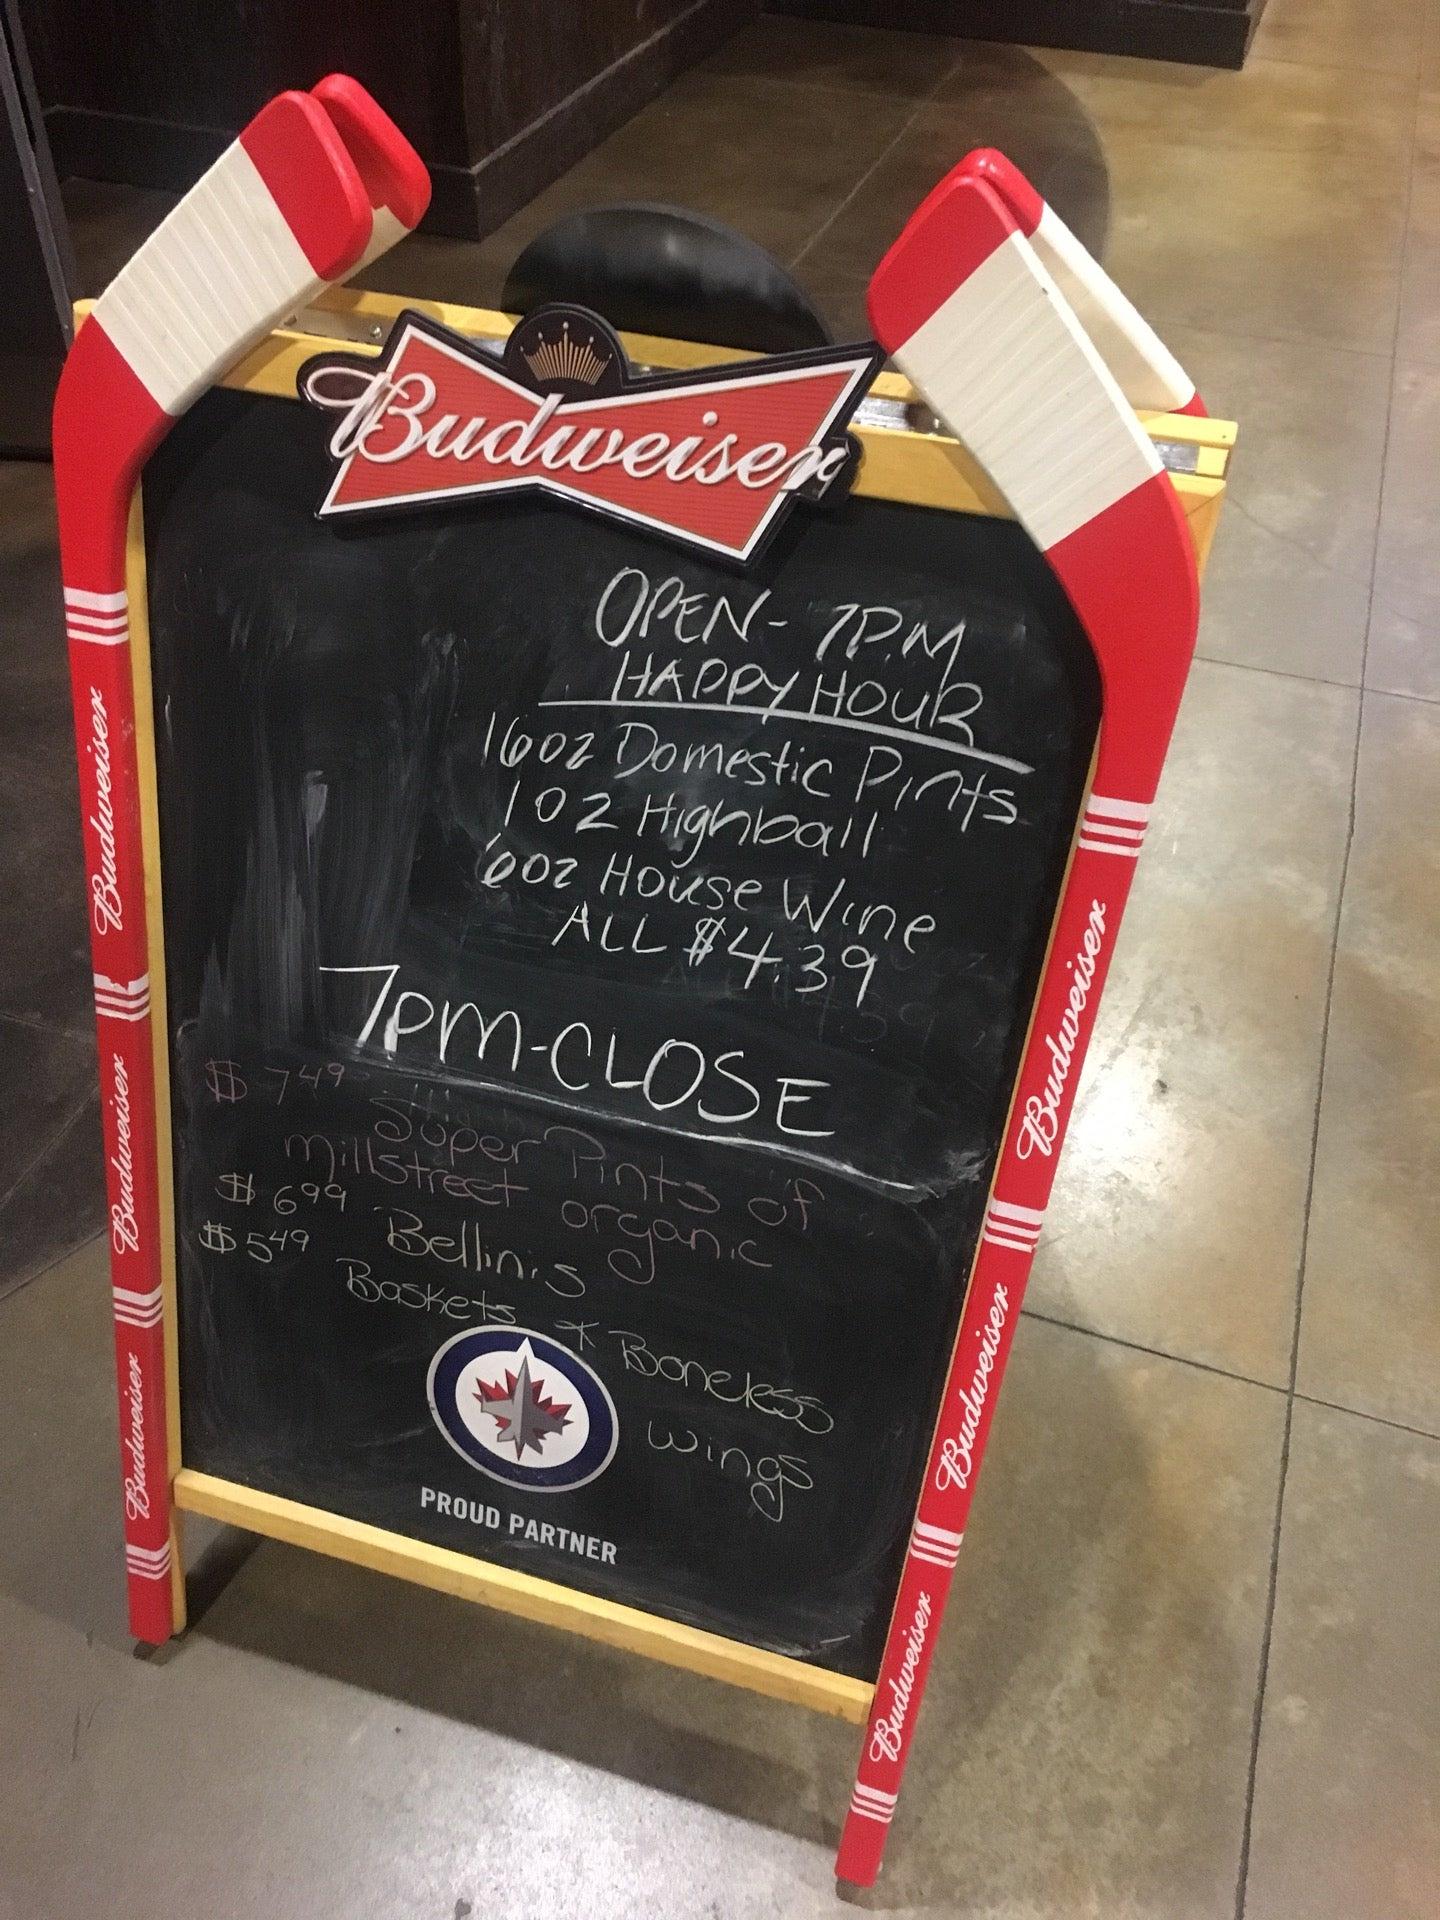 Budweiser
OPEN - 7PM
HAPPY HOUR
16oz Domestic Pints
1oz Highball
6oz House Wine
ALL $4.39
7pm-CLOSE
$7.49 Super Pints of
millstreet organic
$6.99 Bellinis
$5.49 Baskets * Boneless
wings
PROUD PARTNER
Budweiser
Budweiser
Budweiser
Budweiser
Budweiser
Budweiser